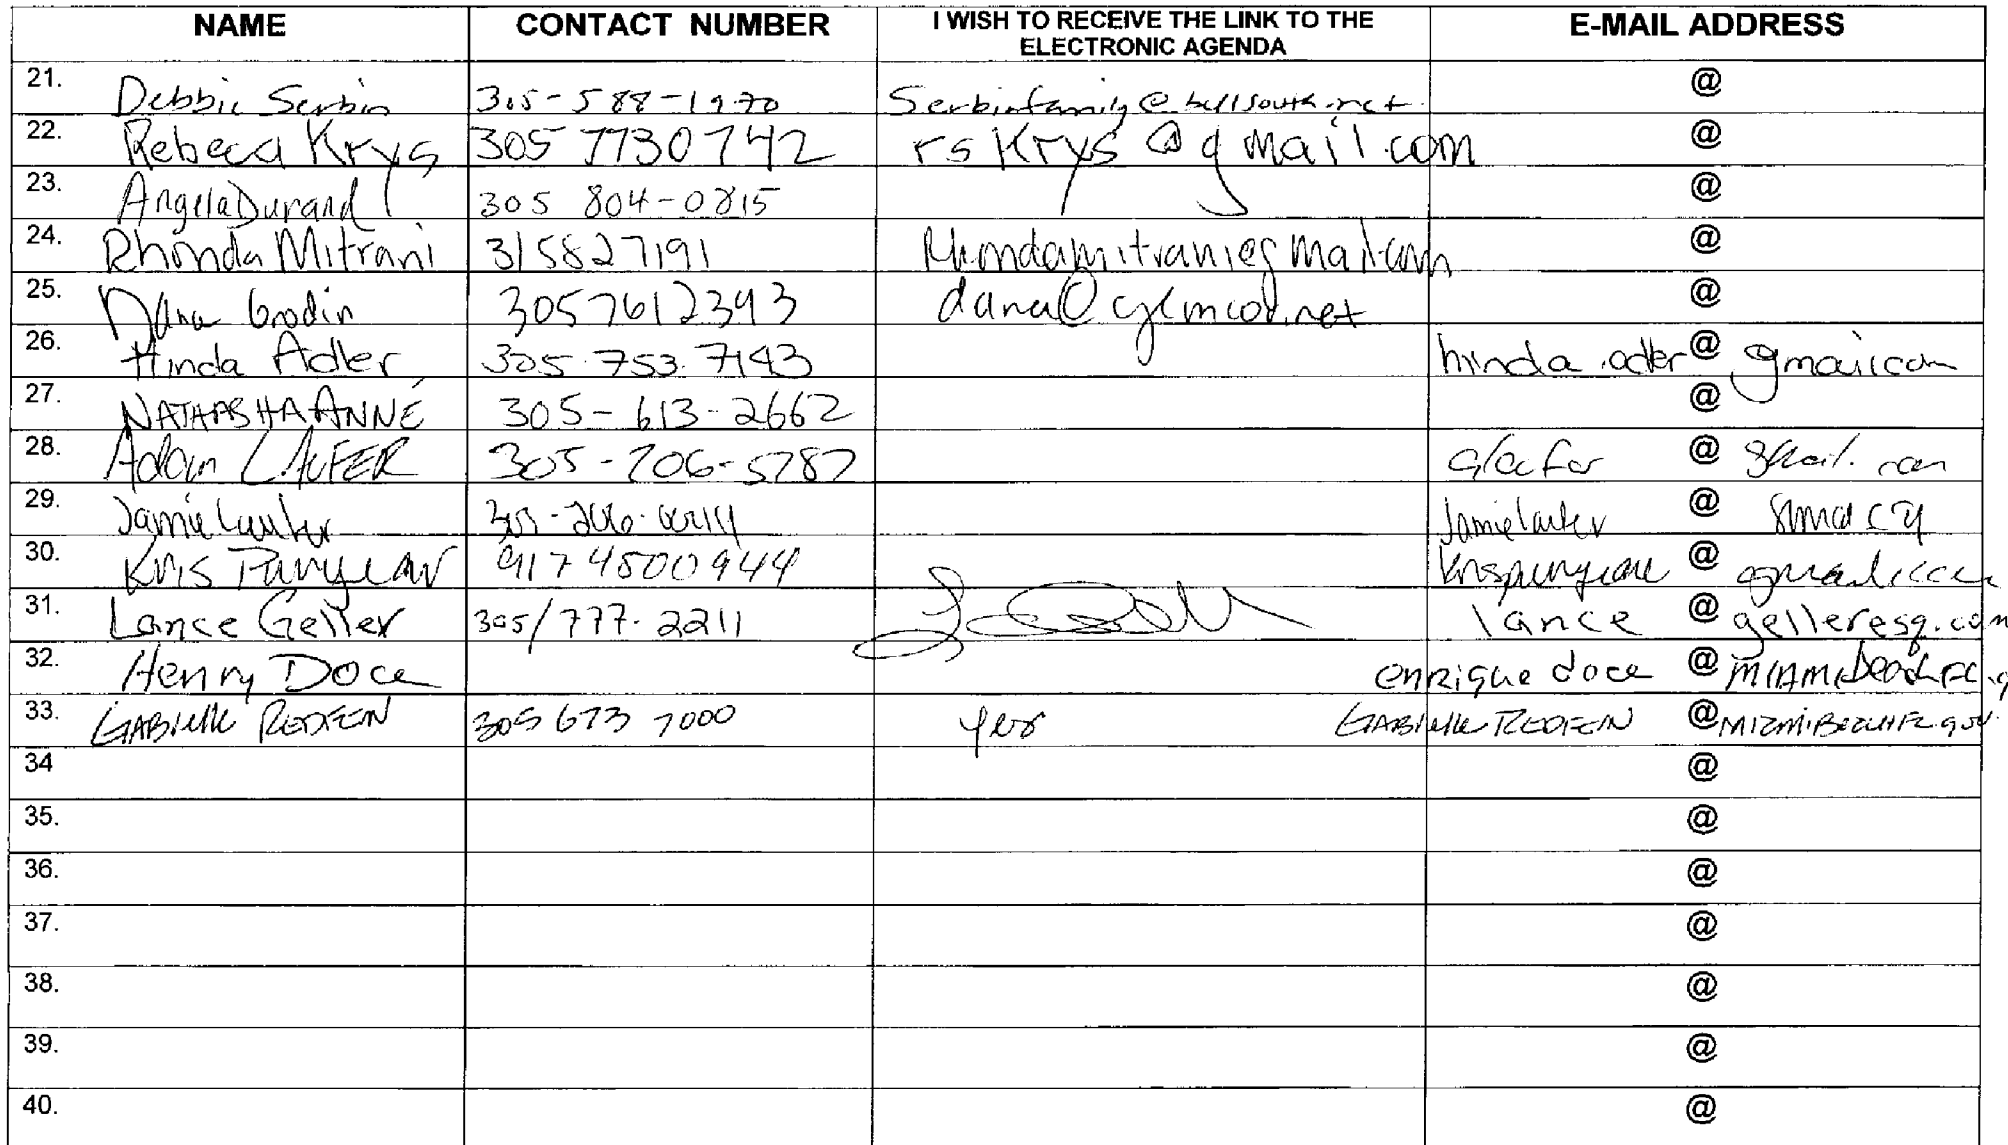 NAME CONTACT NUMBER I WISH TO RECEIVE THE LINK TO THE ELECTRONIC AGENDA E-MAIL ADDRESS
21. Debbie Serbin 305-588-1970 Serbinfamily@bellsouth.net @
22. Rebeca Krys 305 7730742 rsKrys@gmail.com @
23. Angela Durand 305 804-0815 @
24. Rhonda Mitrani 315827191 Rhondamitrani@gmail.com @
25. Dana Grodin 3057612393 dana@ @
26. Hinda Adler 305.753.7143 hinda.adler@gmail.com
27. NATHASHA ANNE 305-613-2662 @
28. Adam LAUFER 305-206-5787 @
29. Jamie Laufer Jamielaufer @
30. Kris 917 4500944 @
31. Lance Geller 305/777-2211 lance @ gelleresq.com
32. Henry Doce enrique doce @ MIAMIbeachFL.g
33. GABRIELLE REDFERN 305 673 7000 yes GABRIELLE REDFERN @MIAMIBEACHFL.gov
34 @
35. @
36. @
37. @
38. @
39. @
40. @